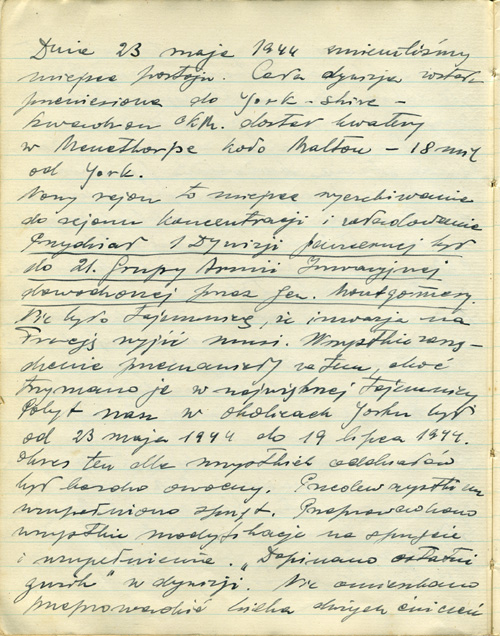 Dnia 23 maja 1944 zmieniliśmy
miejsce postoju. Cała dywizja została
przeniesiona do York-shire -
szwadron dostał kwatery
w Menethorpe koło Malton - 18 mil
od York.
Nowy rejon to miejsce wyczekiwania
do rejonu koncentracji i załadowania
Przydział 1 Dywizji pancernej był
do 21. Grupy Armii Inwazyjnej
dowodzonej przez Gen. Montgomery.
Nie było tajemnicą, że inwazja na
Francję wyjść musi. Wszystkie
przemawiały za tem, choć
trzymano je w największej tajemnicy
Pobyt nasz w okolicach Yorku był
od 23 maja 1944 do 19 lipca 1944.
Okres ten dla wszystkich oddziałów
był bardzo owocny. Przedewszystkiem
uzupełniono sprzęt. Przeprowadzono
wszystkie modyfikacje na sprzęcie
i uzupełnienia. „Dopinano ostatni
guzik" w dywizji. Nie omieszkano
przeprowadzić kilka dużych ćwiczeń